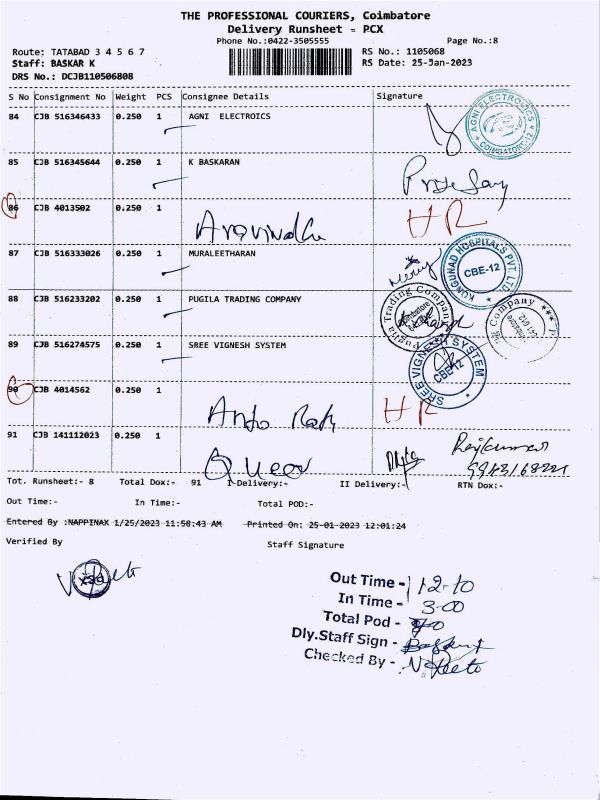 THE PROFESSIONAL COURIERS, Coimbatore
Delivery Runsheet - PCX
Phone No.:0422-3505555
Page No.:8
Route: TATABAD 3 4 5 6 7
RS No.: 1105068
Staff: BASKAR K
RS Date: 25-Jan-2023
DRS No.: DCJB110506808
S No Consignment No Weight PCS Consignee Details Signature
84 CJB 516346433 0.250 1 AGNI ELECTROICS
AGNI ELECTROICS COIMBATORE-12
85 CJB 516345644 0.250 1 K BASKARAN
86 CJB 4013502 0.250 1 HR
87 CJB 516333026 0.250 1 MURALEETHARAN
KONGUNAD HOSPITALS PVT. LTD. CBE-12
88 CJB 516233202 0.250 1 PUGILA TRADING COMPANY
Pugila Trading Company
Company
89 CJB 516274575 0.250 1 SREE VIGNESH SYSTEM
SREE VIGNESH SYSTEM CBE-12
90 CJB 4014562 0.250 1 HR
91 CJB 141112023 0.250 1 Rajkumar
Tot. Runsheet:- 8 Total Dox:- 91 I Delivery:- II Delivery:- RTN Dox:-
Out Time:- In Time:- Total POD:-
Entered By :NAPPINAX 1/25/2023 11:58:43 AM Printed On: 25-01-2023 12:01:24
Verified By Staff Signature
Out Time - 12-10
In Time - 3-00
Total Pod -
Dly.Staff Sign -
Checked By -